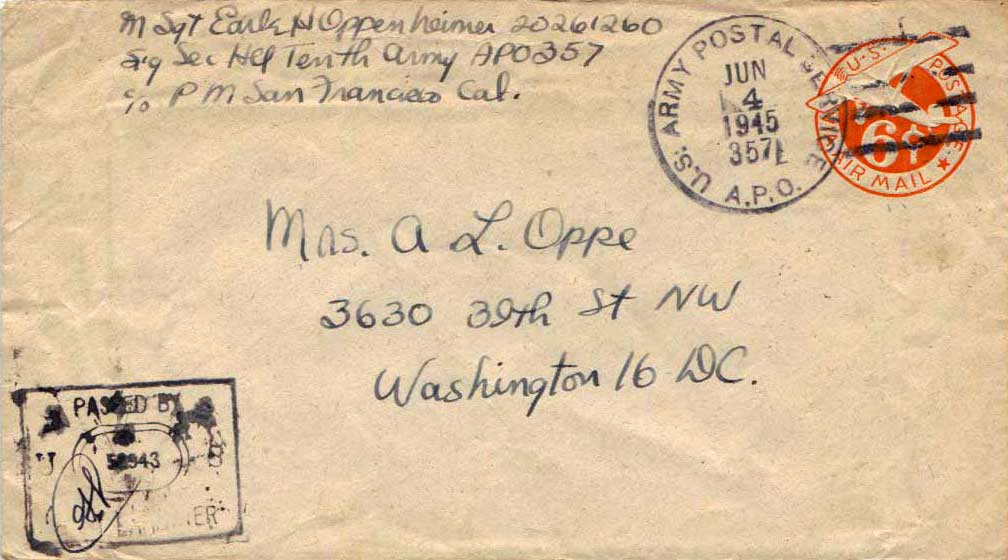 M Sgt Earle H Oppenheimer 20261260
Sig Sec Hq Tenth Army APO 357
c/o P M San Francisco Cal.
U.S. ARMY POSTAL SERVICE
JUN
4
1945
357
A.P.O.
U.S. POSTAGE
6¢
AIR MAIL
Mrs. A L. Oppe
3630 39th St NW
Washington 16 DC.
PASSED BY
U S
EXAMINER